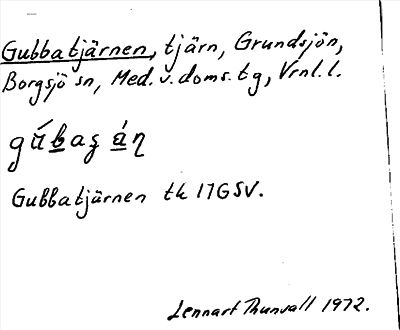 Gubbatjärnen, tjärn, Grundsjön,
Borgsjö sn, Med. v. doms. tg, Vrnl. l.
Gubbatjärnen tk 17GSV.
Lennart Thunvall 1972.